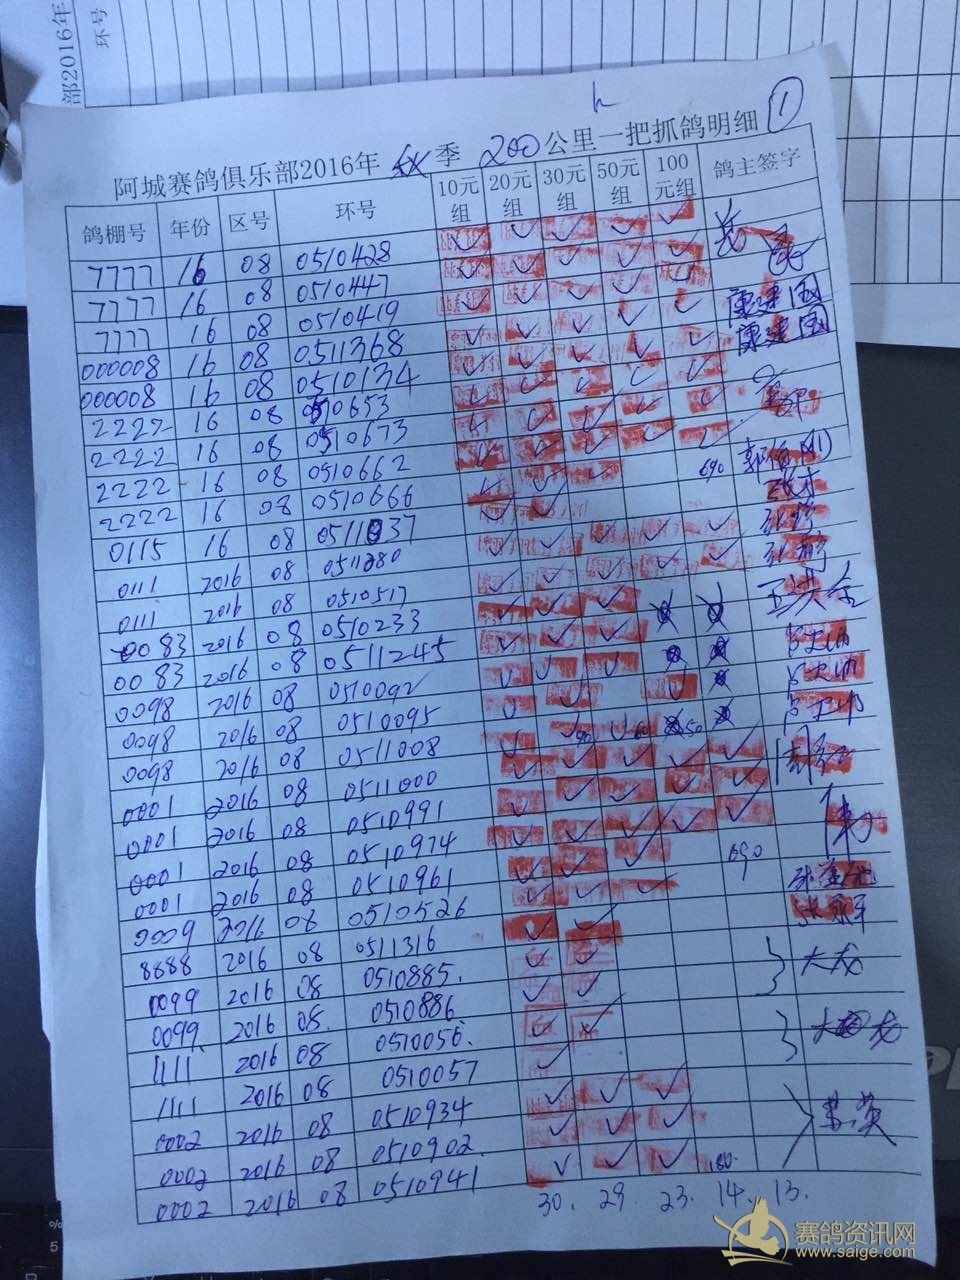 部2016年
环号
①
阿城赛鸽俱乐部2016年 秋 季 200 公里一把抓鸽明细
鸽棚号 年份 区号 环号 10元组 20元组 30元组 50元组 100元组 鸽主签字
7777 16 08 0510428 ✓ ✓ ✓ ✓ ✓
7777 16 08 0510447 ✓ ✓ ✓ ✓ ✓
7777 16 08 0510419 ✓ ✓ ✓ ✓ ✓ 康建国
000008 16 08 0511368 ✓ ✓ ✓ ✓ ✓ 康建国
000008 16 08 0510134 ✓ ✓ ✓ ✓ ✓
2222 16 08 0510653 ✓ ✓ ✓ ✓ ✓
2222 16 08 0510673 ✓ ✓ ✓ ✓ ✓
2222 16 08 0510662 ✓ ✓ ✓ 690
2222 16 08 0510666 ✓ ✓
0115 16 08 0511037 ✓ ✓ ✓ ✓ ✓
0111 2016 08 0511280 ✓ ✓ ✓ ✓ ✓
0111 2016 08 0510517 ✓ ✓ ✓
0083 2016 08 0510233 ✓ ✓ ✓
0083 2016 08 0511245 ✓ ✓ ✓
0098 2016 08 0510092 ✓ ✓
0098 2016 08 0510095
0098 2016 08 0511008 ✓ ✓ ✓ ✓ ✓
0001 2016 08 0511000 ✓ ✓ ✓ ✓ ✓
0001 2016 08 0510991 ✓ ✓ ✓ ✓ ✓
0001 2016 08 0510974 ✓ ✓ ✓ 690
0001 2016 08 0510961 ✓ ✓ ✓
0009 2016 08 0510526 ✓ ✓
8888 2016 08 0511316 ✓ ✓
0099 2016 08 0510885. ✓ ✓ 大龙
0099 2016 08. 0510886 ✓ ✓
1111 2016 08 0510056. ✓
1111 2016 08 0510057 ✓ ✓ ✓
0002 2016 08 0510934 ✓ ✓ ✓
0002 2016 08 0510902. ✓ ✓ ✓ 180.
0002 2016 08 0510941
30. 29. 23. 14. 13.
赛鸽资讯网
www.saige.com